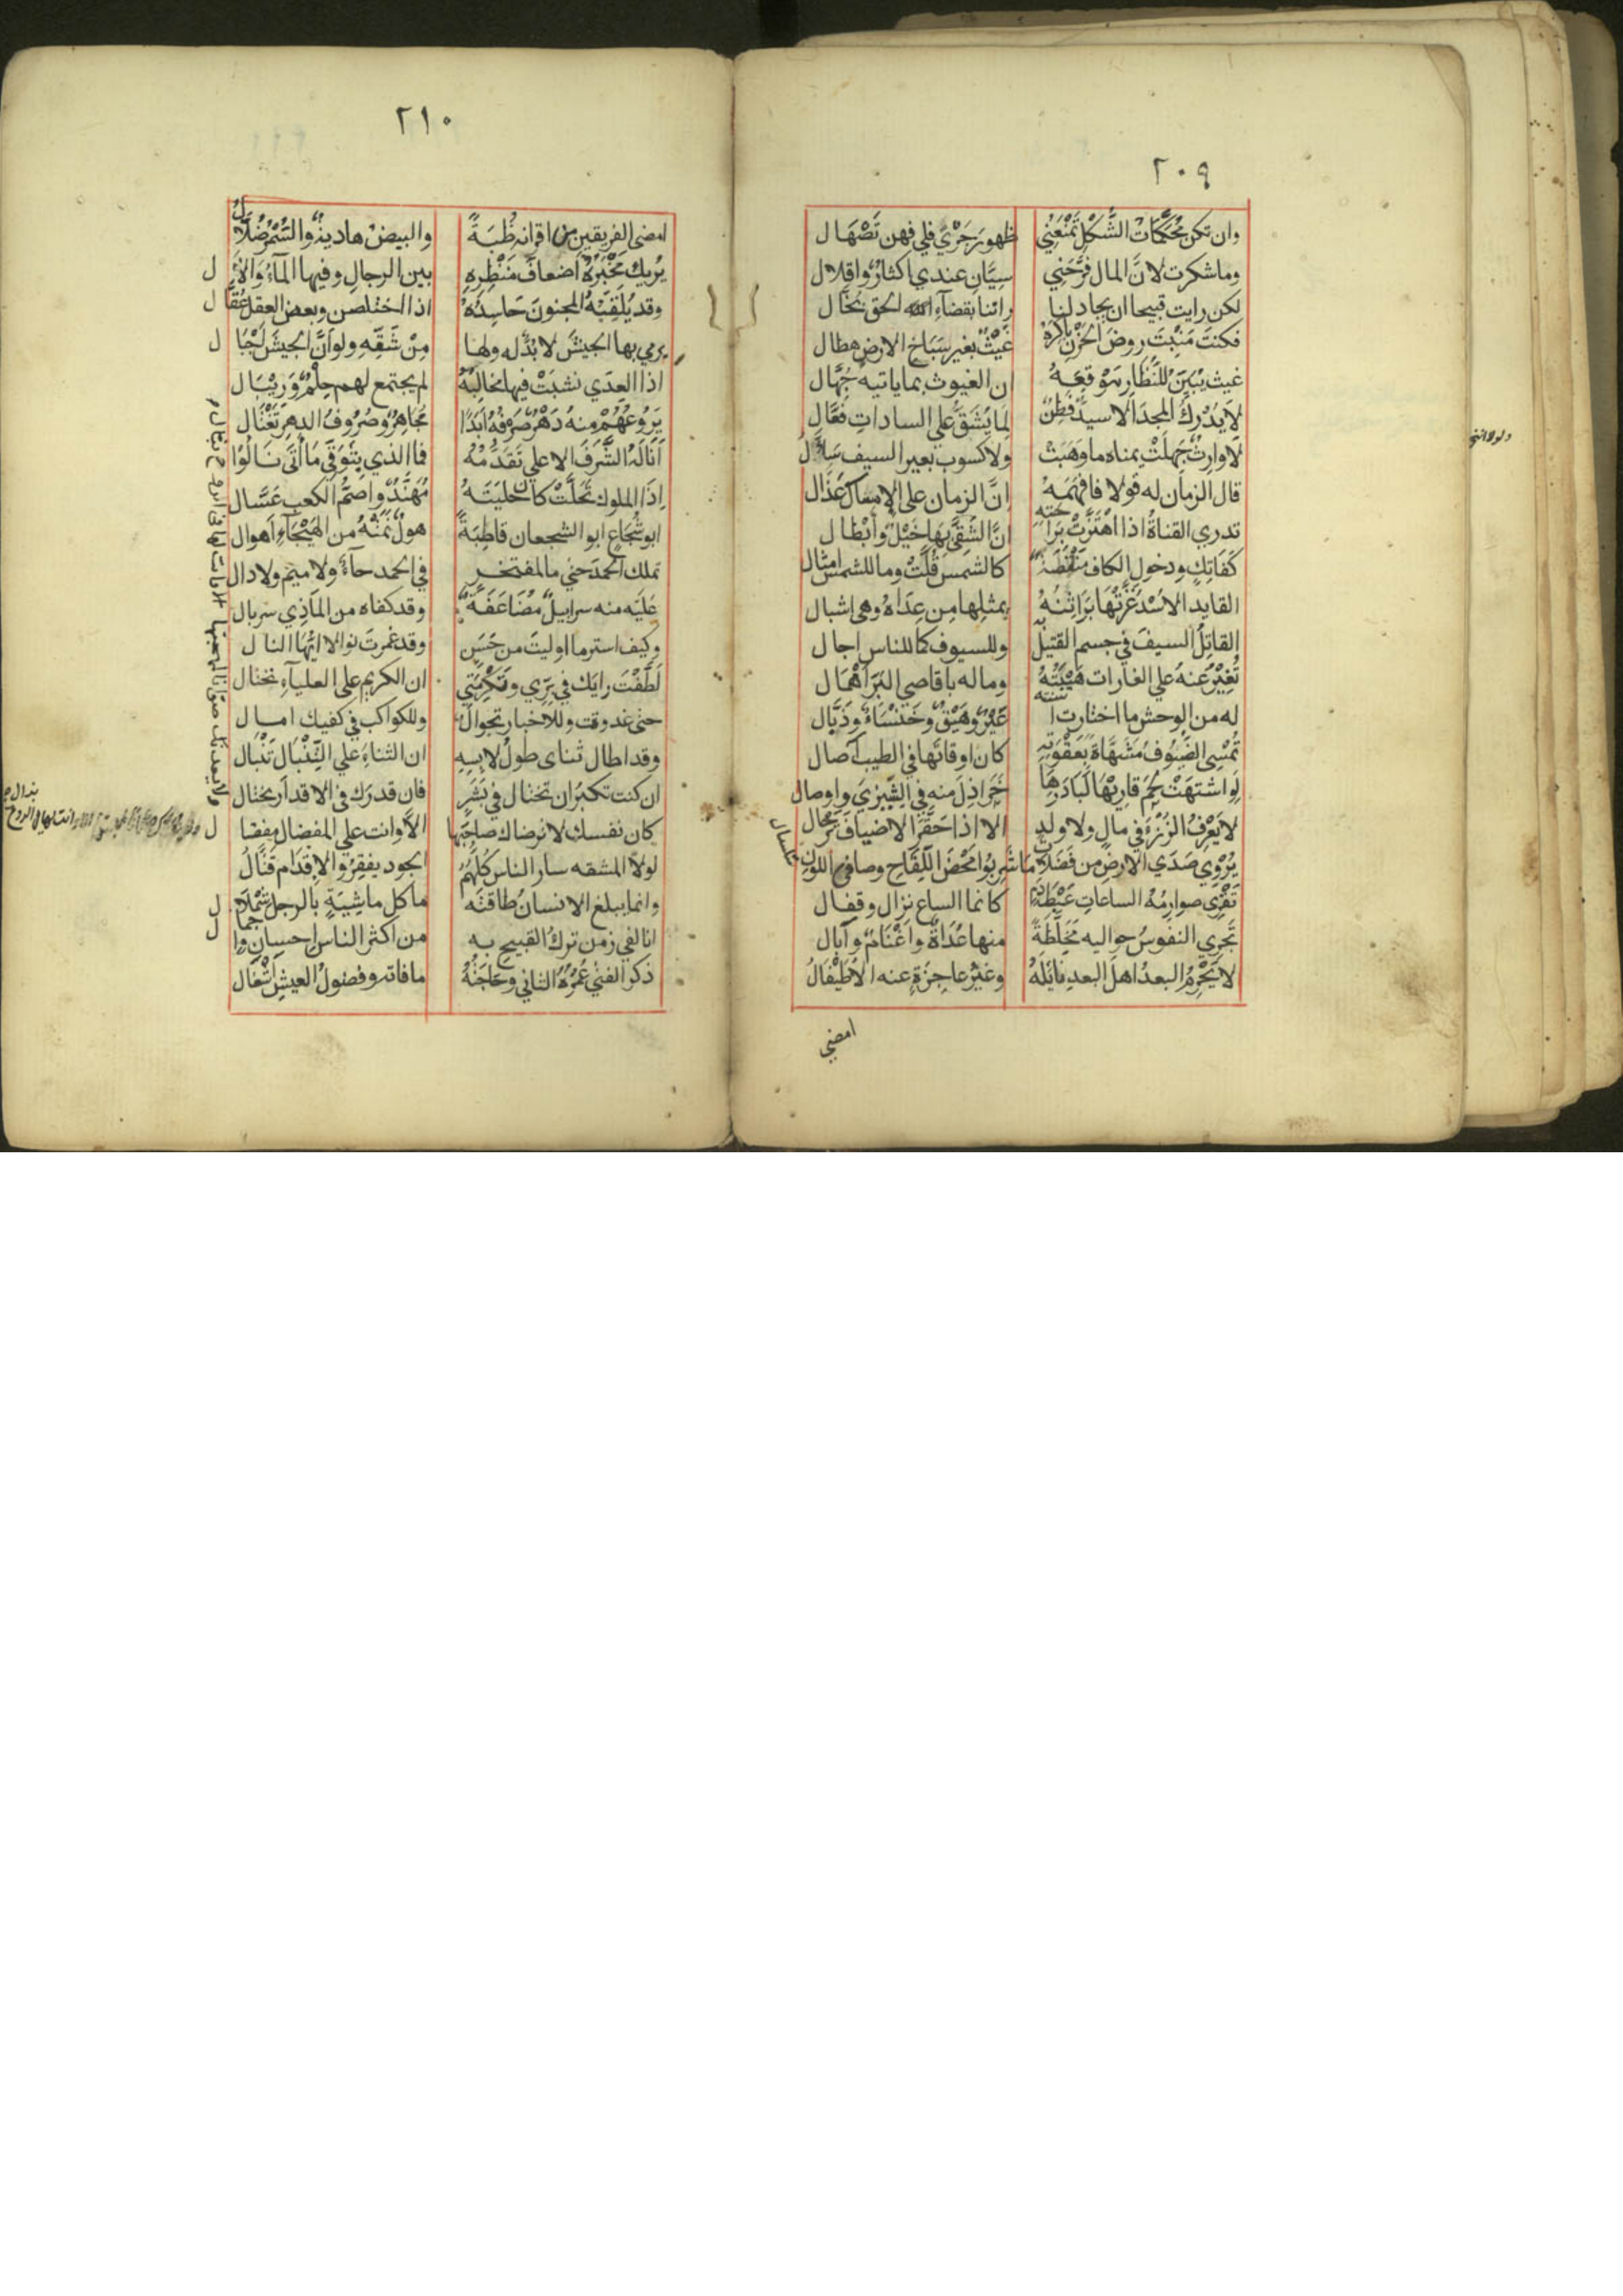 ٢٠٩
وان تكن مُحْكَمَاتُ الشَّكْلِ تَمْنَعُنِي ظهورَ جَرْيٍ فلي فهن تَصْهَال
وما شكرت لانَّ المال فَرَّحَني سِيَّانِ عندي اكثارٌ واقلال
لكن رايت قبيحا ان يجاد لنا واننا بقضاءِ الحق بُخَّال
فكنتَ مَنْبِتَ روضِ الحَزْنِ باكرَهُ غَيْثٌ بغير سَبَاخِ الارض هطال
غيث يُبَيِّنُ للنُّظَّارِ مَوْقِعَهُ ان الغيوث بما ياتيه جُهَّال
لا يُدْرِكُ المجدَ الا سيدٌ فَطِنٌ لِمَا يَشُقُّ علي السادات فَعَّال
لا وارِثٌ جَهِلَتْ يمناه ما وَهَبَتْ ولا كسوب بغير السيف سَئَّال
قال الزمان له قولا فافهَمَهُ اِنَّ الزمان على الامساك عَذَّال
تدري القناةُ اذا اهْتَزَّتْ بِرَاحَتِهِ انَّ الشَّقِيَّ بِهَا خَيْلٌ وأَبْطَال
كَفَاتِكٍ ودخول الكاف مَنْقَصَةٌ كالشمس قُلْتُ وما للشمس امثال
القايد الاُسْدَ غَذَّتْهَا بَرَاثِنُهُ بمثلِها مِن عِدَاهُ وهي اشبال
القاتِلُ السيفَ في جسم القتيل به وللسيوف كما للناس اجال
تُغِيْرُ عَنهُ علي الغارات هَيْبَتُهُ وماله باقاصي البَرِّ اَهْمَال
له من الوحش ما اختارت اسنته عَيْرٌ وهَيْقٌ وخَنْسَاءٌ وذَيَّال
تُمْسِي الضُّيُوفُ مُشَهَّاةً بِعَقْوَتِهِ كان اوقاتَها في الطيب آصال
لَوِ اشتهَتْ لَحْمَ قارِيْهَا لَبَادَرَهَا خَرَاذِلٌ منه في الشِّيْزَي واوصال
لا يَعْرِفُ الرُّزْءَ في مالٍ ولا ولدٍ الا اذا حَفَزَ الاضيافَ تَرْحَال
يُرْوِي صَدَي الارضِ من فَضَلَاتِ مَا شَرِبُوا مَحْضُ اللِّقَاحِ وصافي اللون سلسال
تَقْرِي صوارِمُهُ الساعاتِ عَبْطَ دَمٍ كانما الساع نِزَال وقفال
تَجْرِي النفوسُ حواليه مُخَلَّطَةً منها عُدَاةٌ واَغْنَامٌ وآبال
لا يَحْرِمُ البعدُ اهلَ البعدِ نايَلَهُ وغَيْرُ عاجِزَةٍ عنه الاُطَيْفَالُ
امضي
٢١٠
امضي الفريقين من اقرانه ظُبَةً والبيضُ هاديةٌ والسُّمْرُ ضُلَّال
يُرِيك مَخْبَرُهُ اَضعافَ مَنْظَرِهِ بين الرجالِ وفيها المآءُ وَالآل
وقد يُلَقِّبُهُ المجنونَ حَاسِدُهُ اذا اختلطن وبعضُ العقل عُقَّال
يرمي بها الجيشَ لا بُدٌّ له ولها مِنْ شَقِّهِ ولو اَنَّ الجيشَ اَجْبَال
اذا العِدَي نشبَتْ فيها مخالِبُهُ لم يجتمع لهم حِلْمٌ وَرِيْبَال
يَرُوعُهُمْ مِنهُ دَهْرٌ صَرْفُهُ اَبَدًا مُجَاهِرٌ وصُرُوفُ الدهرِ تَغْتَال
اَنَالَهُ الشَّرَفَ الاعلي تَقَدُّمُهُ فما الذي بِتَوَقِّي مَا أَتَي نَالُوا
اِذَا الملوك تَحَلَّتْ كان حليَتَهُ مُهَنَّدٌ واَصَمُّ الكعبِ عَسَّال
ابو شُجَاعٍ ابو الشجعان قاطِبَةً هولٌ نَمَتْهُ من الهَيْجَآءِ اَهوال
تملك الحمدَ حتي ما لمفتخر في الحمد حآءٌ ولا ميمٌ ولا دال
عليَه منه سرابيلٌ مُضَاعَفَةٌ وقد كفاه من المَاذِي سربال
وكيف استر ما اوليتَ من حَسَنٍ وقد غمرتَ نوالا ايُّها النال
لَطَّفْتَ رايَك في بِرِّي وتَكْرِمَتِي ان الكريم علي العليآءِ يختال
حتي غدوت وللاخبار تجوالٌ وللكواكب في كفيك امال
وقد اطال ثناى طولُ لابِسِهِ ان الثناءَ علي التِّنْبَالِ تَنْبَال
ان كنت تكبُرُ ان تختال في بَشَرٍ فان قدرَك في الاقدار يختال
كان نفسك لا ترضاك صاحِبَها الّا وانت علي المفضال مفضال
لولا المشقه ساد الناس كُلُّهُمُ الجود يفقِرُ والاِقدَام قَتَّالُ
وانما يبلغ الانسانُ طاقتَه ما كل ماشِيَةٍ بالرحل شِمْلَال
انا لفي زمن تركُ القبيح به من اكثر الناس احسان واجمال
ذكر الفتي عُمْرُهُ الثاني وحَاجَتُهُ ما فاته وفضولُ العيشِ اَشْغَال